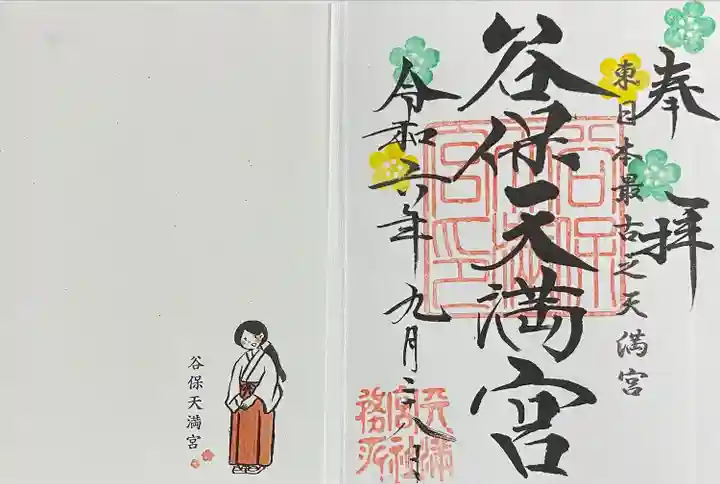 奉拝
東日本最古之天満宮
谷保天満宮
令和六年九月二十八日
谷保天満宮